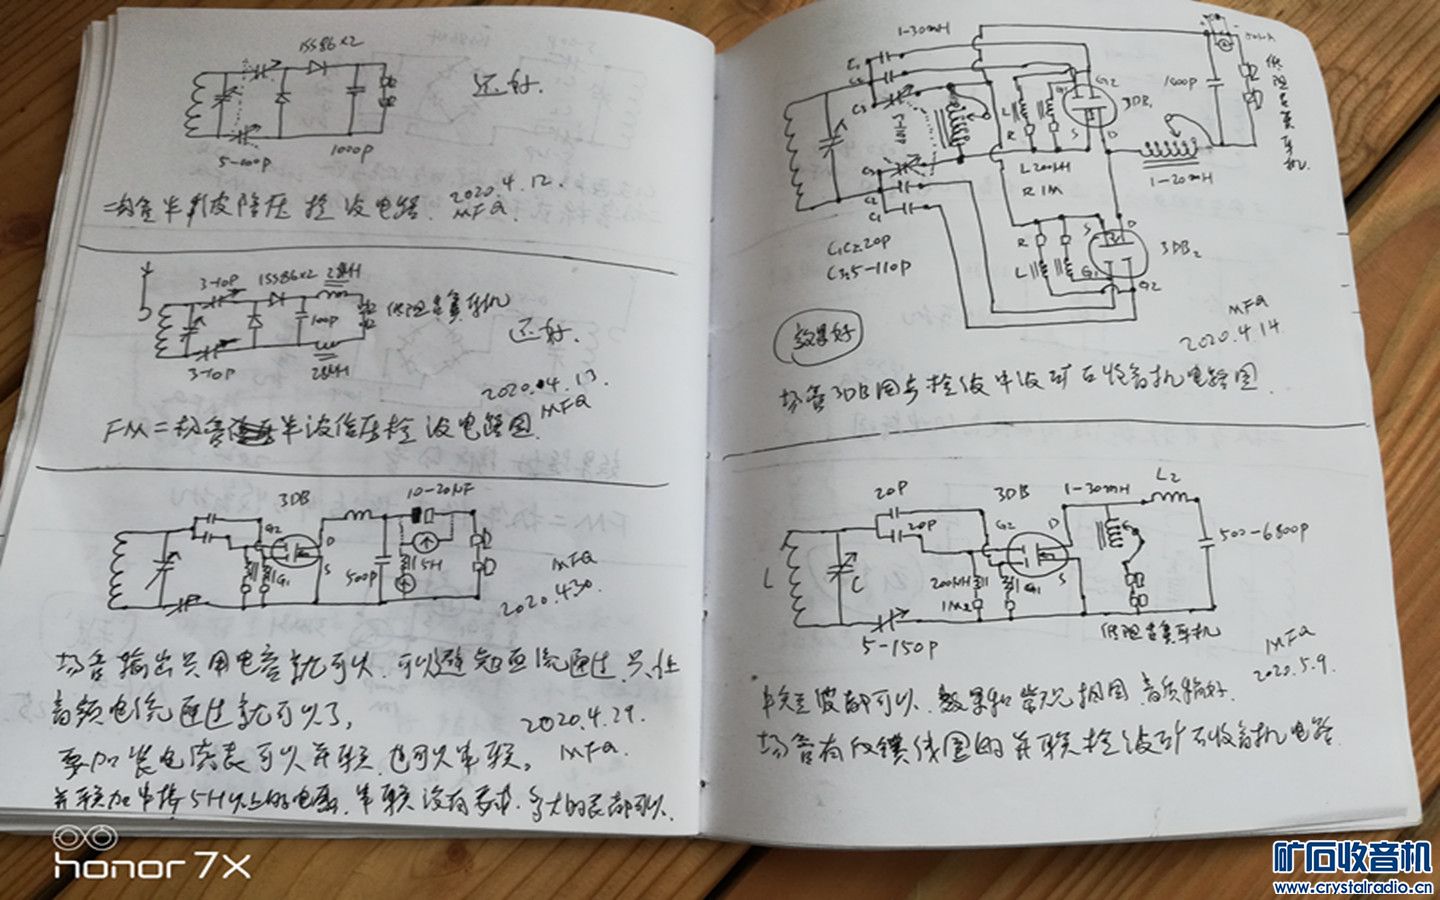 1SS86×2
5-100P
1000P
还好.
二极管半波倍压检波电路.
2020.4.12.
MFQ
3-10P
1SS86×2
28μH
100P
低阻舌簧耳机
3-10P
28μH
还好.
2020.04.13.
MFQ
FM二极管半波倍压检波电路图.
3DB
10-20μF
G2
D
G1
S
500P
5H
MFQ
2020.4.30.
场管输出只用电容就可以.可以避免直流通过.只让
音频电流通过就可以了。
2020.4.29.
要加装电流表可以并联.也可以串联。
MFQ.
并联加串接5H以上的电感.串联没有要求.多大的表都可以.
1-30mH
C1
C2
C3
G2
G1
3DB1
S
D
L
R
1000P
低阻舌簧耳机.
C3
C2
C1
L200μH
R1M
1-20mH
C1C2 20P
C3 5-110P
R
L
S
D
G1
G2
3DB2
效果好
MFQ
2020.4.14
场管3DB同步检波中波矿石收音机电路图.
20P
3DB
1-30mH
L2
G2
D
20P
500-6800P
L
C
200μH
1M2
G1
S
5-150P
低阻舌簧耳机
MFQ
2020.5.9.
中短波都可以.效果和常规相同.音质稍好.
场管有反馈线圈的并联检波矿石收音机电路.
honor 7X
矿石收音机
www.crystalradio.cn